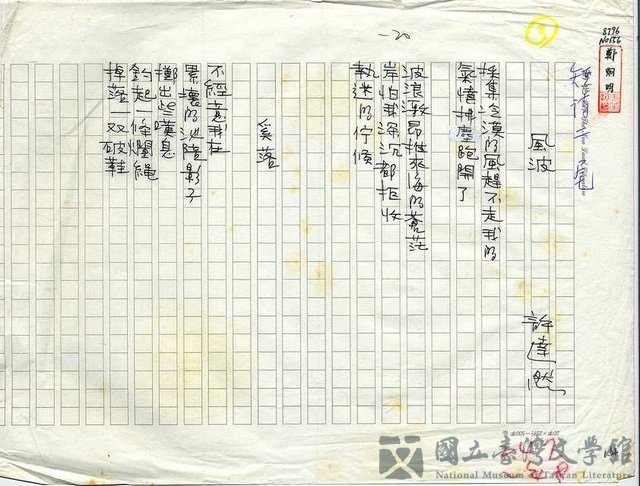 8296
No156
鄭烱明
5
-20
短詩二首
風波
許達然
採集冷漠的風趕不走我的
氣憤拂塵跑開了
波浪激昂推來海的蒼茫
岸怕我深沉都拒收
執迷的佇候
奚落
不經意我在
累壞的池陪影子
擲出些嘆息
釣起一條爛繩
掉落一双破鞋
國立臺灣文學館
National Museum of Taiwan Literature